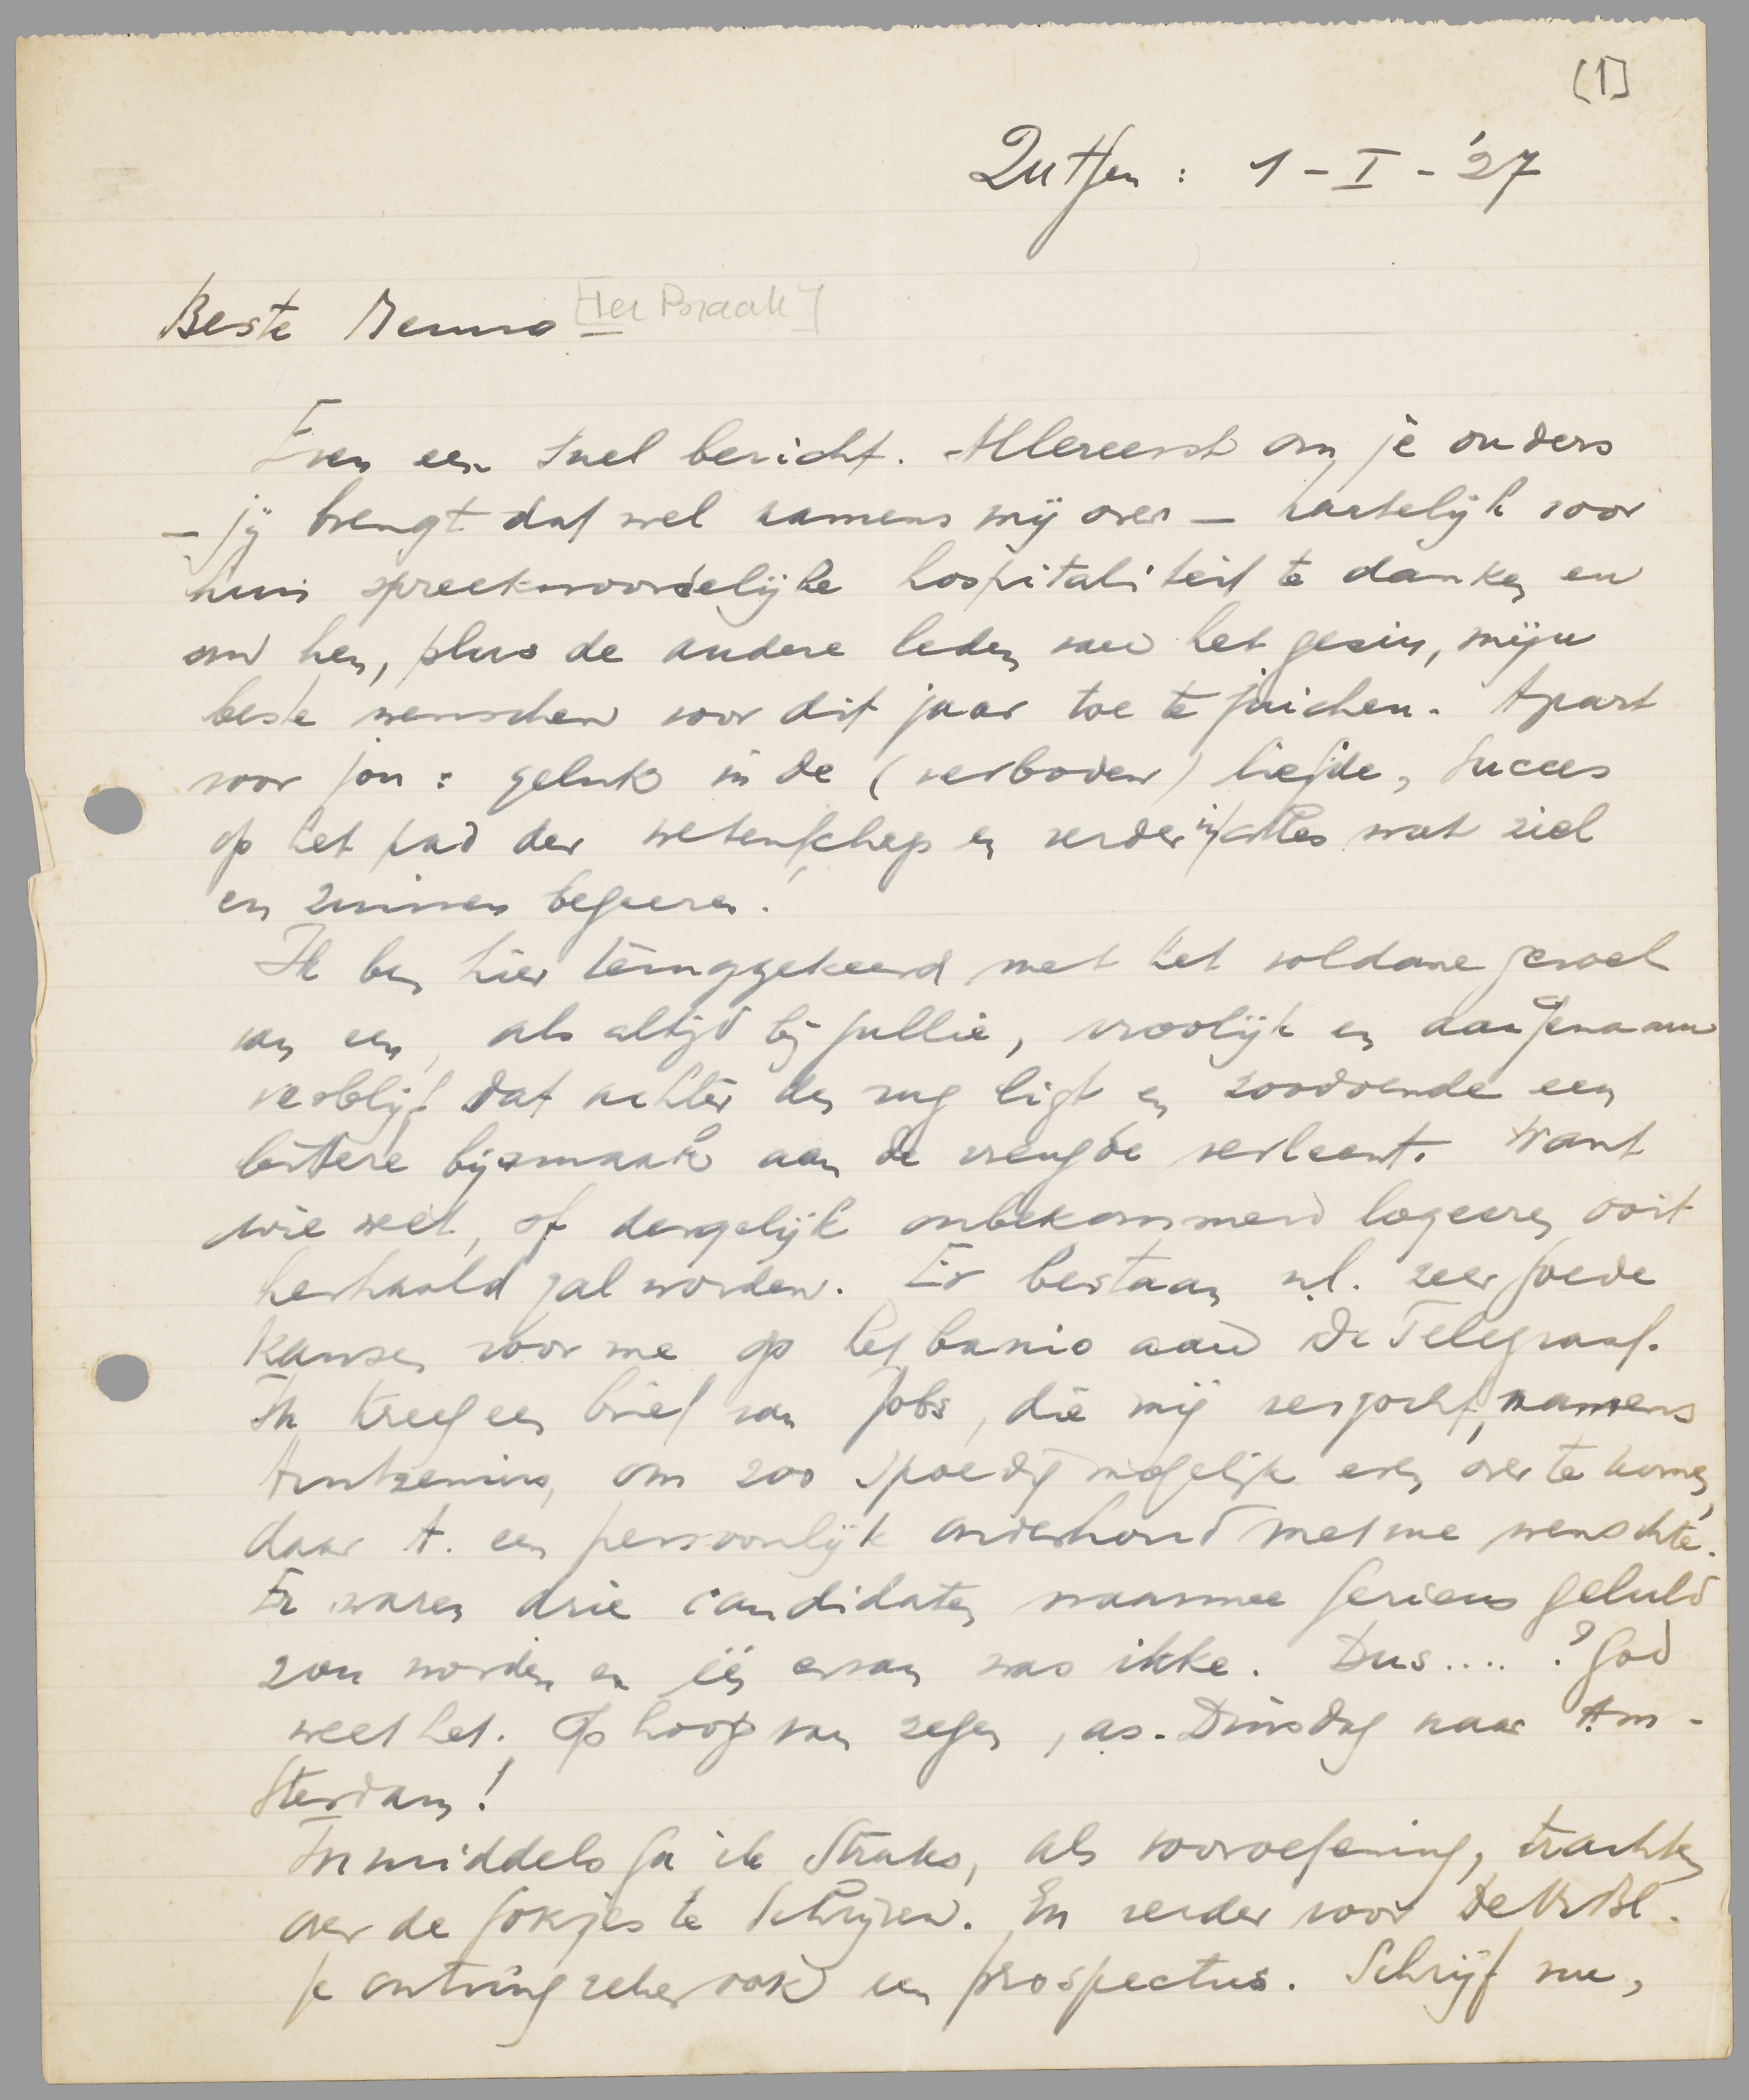 [1]
Zutfen : 1 - I - '27
Beste Menno [Ter Braak]
Even een snel bericht. Allereerst om je ouders
— jij brengt dat wel namens mij over — hartelijk voor
hun spreekwoordelijke hospitaliteit te danken en
om hen, plus de andere leden van het gezin, mijn
beste wenschen voor dit jaar toe te juichen. Apart
voor jou : geluk in de (verboden) liefde, succes
op het pad der wetenschap en verder in alles wat ziel
en zinnen begeeren!
Ik ben hier teruggekeerd met het voldane gevoel
van een, als altijd bij jullie, vroolijk en aangenaam
verblijf dat achter den rug ligt en zoodoende een
bittere bijsmaak aan de vreugde verleent. Want
wie weet, of dergelijk onbekommerd logeeren ooit
herhaald zal worden. Er bestaan n.l. zeer goede
kansen voor me op het baanio aan De Telegraaf.
Ik kreeg een brief van Jobs, die mij verzocht, namens
Arntzenius, om zoo spoedig mogelijk even over te komen,
daar A. een persoonlijk onderhoud met me wenschte.
Er waren drie candidaten waarmee serieus geluld
zou worden en één ervan was ikke. Dus .... ? God
weet het. Op hoop van zegen, as. Dinsdag naar Am-
sterdam!
Inmiddels ga ik straks, als vooroefening, trachten
over de fokjes te schrijven. En verder voor De Vr. Bl.
Je ontving zeker ook een prospectus. Schrijf me,